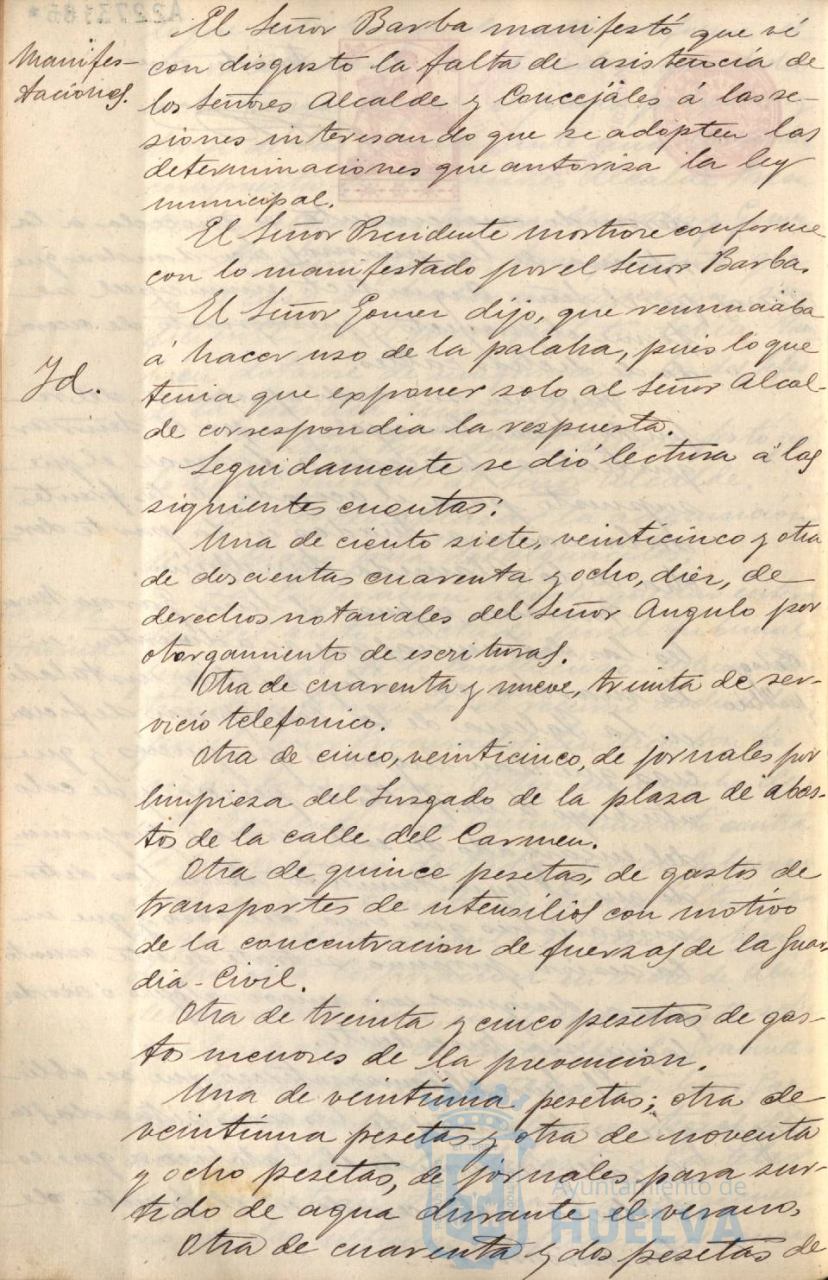 A2273185*
El Señor Barba manifestó que vé
Manifes-
taciones.
con disgusto la falta de asistencia de
los Señores Alcalde y Concejales á las se-
siones interesando que se adopten las
determinaciones que autoriza la ley
municipal.
El Señor Presidente mostrose conforme
con lo manifestado por el Señor Barba.
El Señor Gomez dijo, que renunciaba
á hacer uso de la palabra, pués lo que
Id.
tenia que exponer solo al Señor Alcal-
de correspondia la respuesta.
Seguidamente se dió lectura á las
siguientes cuentas:
Una de ciento siete, veinticinco y otra
de doscientas cuarenta y ocho, diez, de
derechos notariales del Señor Angulo por
otorgamiento de escrituras.
Otra de cuarenta y nueve, treinta de ser-
vicio telefonico.
Otra de cinco, veinticinco, de jornales por
limpieza del Juzgado de la plaza de abas-
tos de la calle del Carmen.
Otra de quince pesetas, de gastos de
transportes de utensilios con motivo
de la concentracion de fuerzas de la Guar-
dia-Civil.
Otra de treinta y cinco pesetas de gas-
tos menores de la prevencion.
Una de veintiuna pesetas; otra de
veintiuna pesetas y otra de noventa
y ocho pesetas, de jornales para sur-
tido de agua durante el verano.
Otra de cuarenta y dos pesetas de
Ayuntamiento de
HUELVA